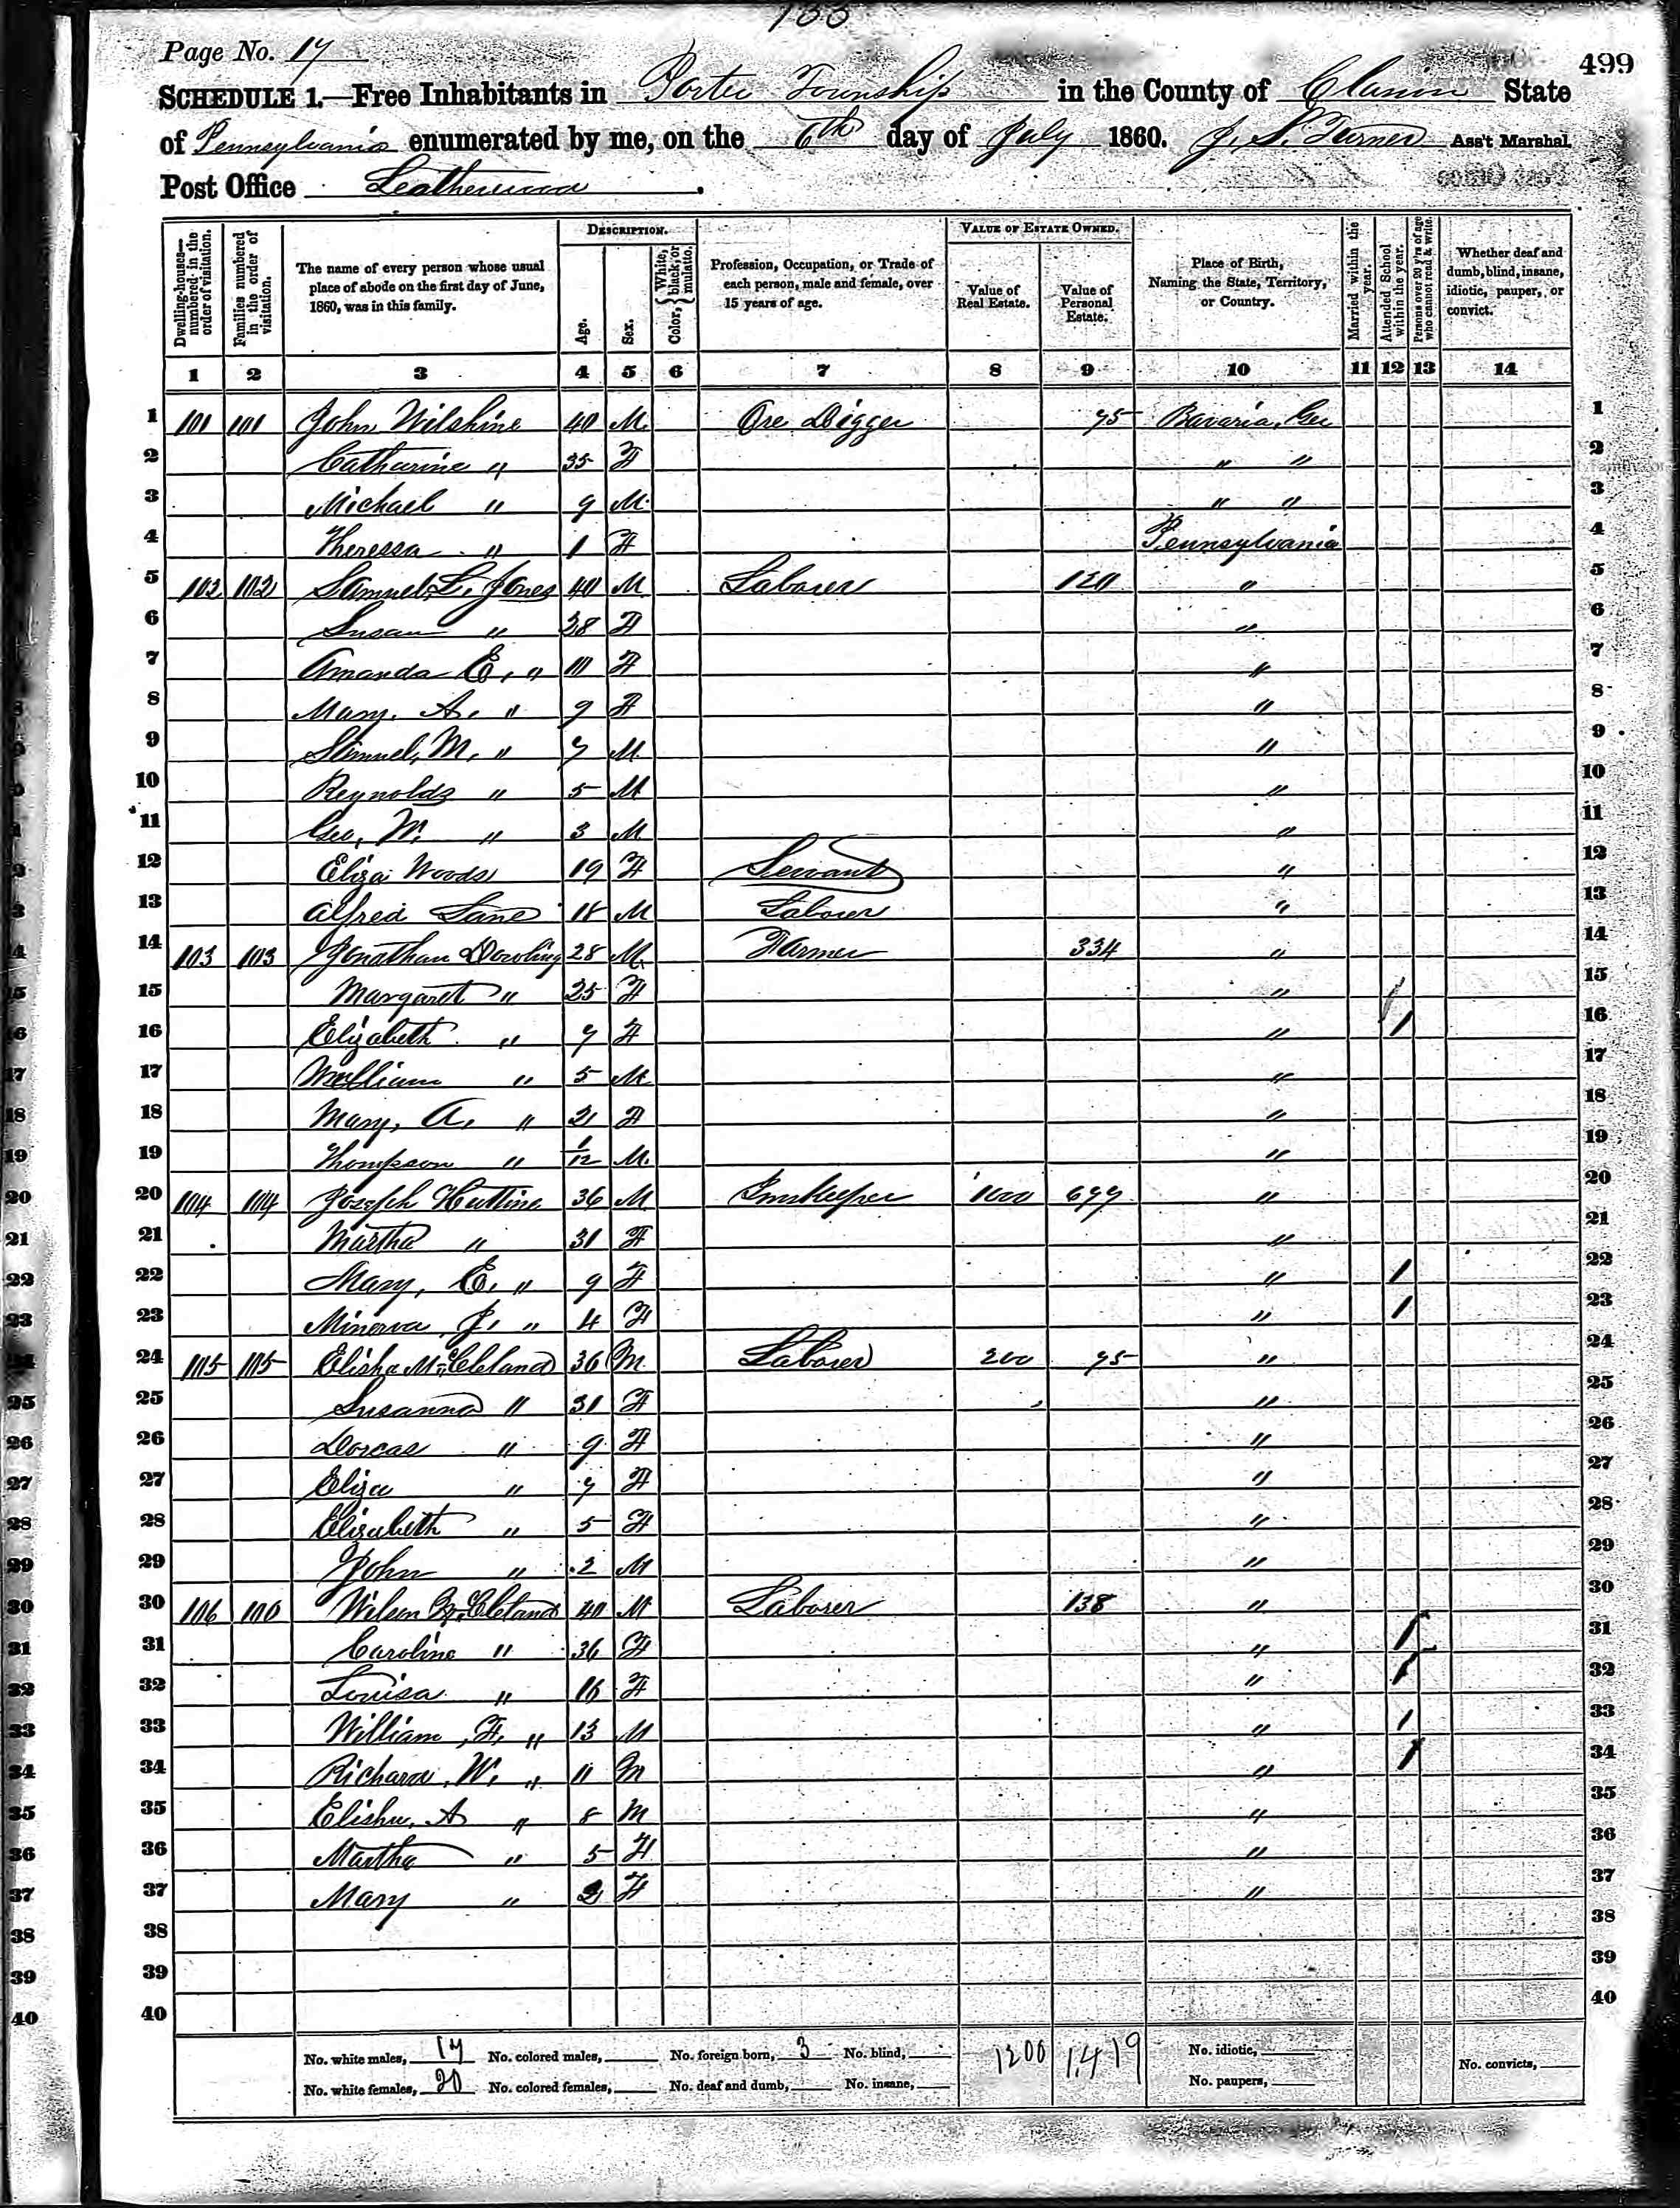 Page No. 17
499
SCHEDULE 1.—Free Inhabitants in Porter Township in the County of Clarion State
of Pennsylvania enumerated by me, on the 6th day of July 1860. J. S. Turner Ass't Marshal
Post Office Leatherwood.
Dwelling-houses—numbered in the order of visitation. Families numbered in the order of visitation. The name of every person whose usual place of abode on the first day of June, 1860, was in this family. DESCRIPTION. Age. Sex. Color, White, black, or mulatto. Profession, Occupation, or Trade of each person, male and female, over 15 years of age. VALUE OF ESTATE OWNED. Value of Real Estate. Value of Personal Estate. Place of Birth, Naming the State, Territory, or Country. Married within the year. Attended School within the year. Persons over 20 y'rs of age who cannot read & write. Whether deaf and dumb, blind, insane, idiotic, pauper, or convict.
1 2 3 4 5 6 7 8 9 10 11 12 13 14
1 101 101 John Wilshine 40 M. Ore Digger 75 Bavaria, Ger 1
2 Catharine " 35 F " " 2
3 Michael " 9 M. " " 3
4 Theressa " 1 F Pennsylvania 4
5 102 102 Samuel L. Jones 40 M Laborer 120 " 5
6 Susan " 38 F " 6
7 Amanda E, " 11 F " 7
8 Mary. A. " 9 F " 8
9 Samuel, M, " 7 M. " 9
10 Reynolds " 5 M " 10
11 Geo, W. " 3 M " 11
12 Eliza Woods 19 F Servant " 12
13 Alfred Lane 18 M Laborer " 13
14 103 103 Jonathan Dowling 28 M Farmer 334 " 14
15 Margaret " 25 F " 15
16 Elizabeth " 7 F " / 16
17 William " 5 M " 17
18 Mary, A. " 2 F " 18
19 Thompson " 1/12 M. " 19
20 104 104 Joseph 36 M Innkeeper 1000 677 " 20
21 Martha " 31 F " 21
22 Mary, E. " 9 F " / 22
23 Minerva J. " 4 F " / 23
24 105 105 Elisha McCleland 36 M. Laborer 200 75 " 24
25 Susanna " 31 F " 25
26 Dorcas " 9 F " 26
27 Eliza " 7 F " 27
28 Elizabeth " 5 F " 28
29 John " 2 M " 29
30 106 106 Wilson McCleland 40 M Laborer 138 " 30
31 Caroline " 36 F " / 31
32 Louisa " 16 F " / 32
33 William, F. " 13 M " / 33
34 Richard, W. " 11 M " / 34
35 Elisha, A " 8 M " 35
36 Martha " 5 F " 36
37 Mary " 2 F " 37
38 38
39 39
40 40
No. white males, 17 No. colored males, No. foreign born, 3 No. blind, 1200 1419 No. idiotic,
No. white females, 20 No. colored females, No. deaf and dumb, No. insane, No. paupers, No. convicts,